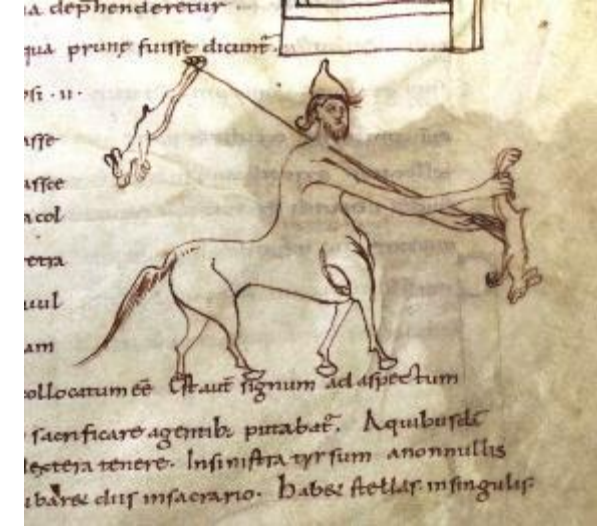 a dephenderetur
qua prunę fuisse dicunt̄.
si · ii ·
asse
assce
acol
etra
uul
am
ollocatum eē Est aut̄ signum ad aspectum
sacrificare agentib; putabat̄. A quibusdā
dextera tenere. In sinistra tyrsum a nonnullis
ibare diis in sacrario. Habet stellas in singulis